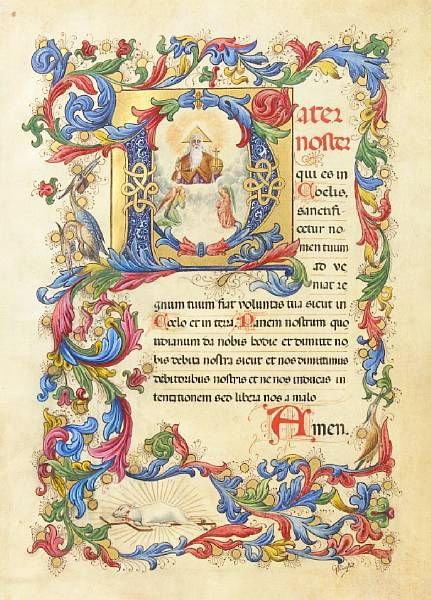 Pater
noster
qui es in
Coelis,
sanctifi
cetur no
men tuum
ad ve
niat re
gnum tuum fiat voluntas tua sicut in
Coelo et in terra. Panem nostrum quo
tidianum da nobis hodie et dimitte no
bis debita nostra sicut et nos dimittimus
debitoribus nostris et ne nos inducas in
tentationem sed libera nos a malo
Amen.